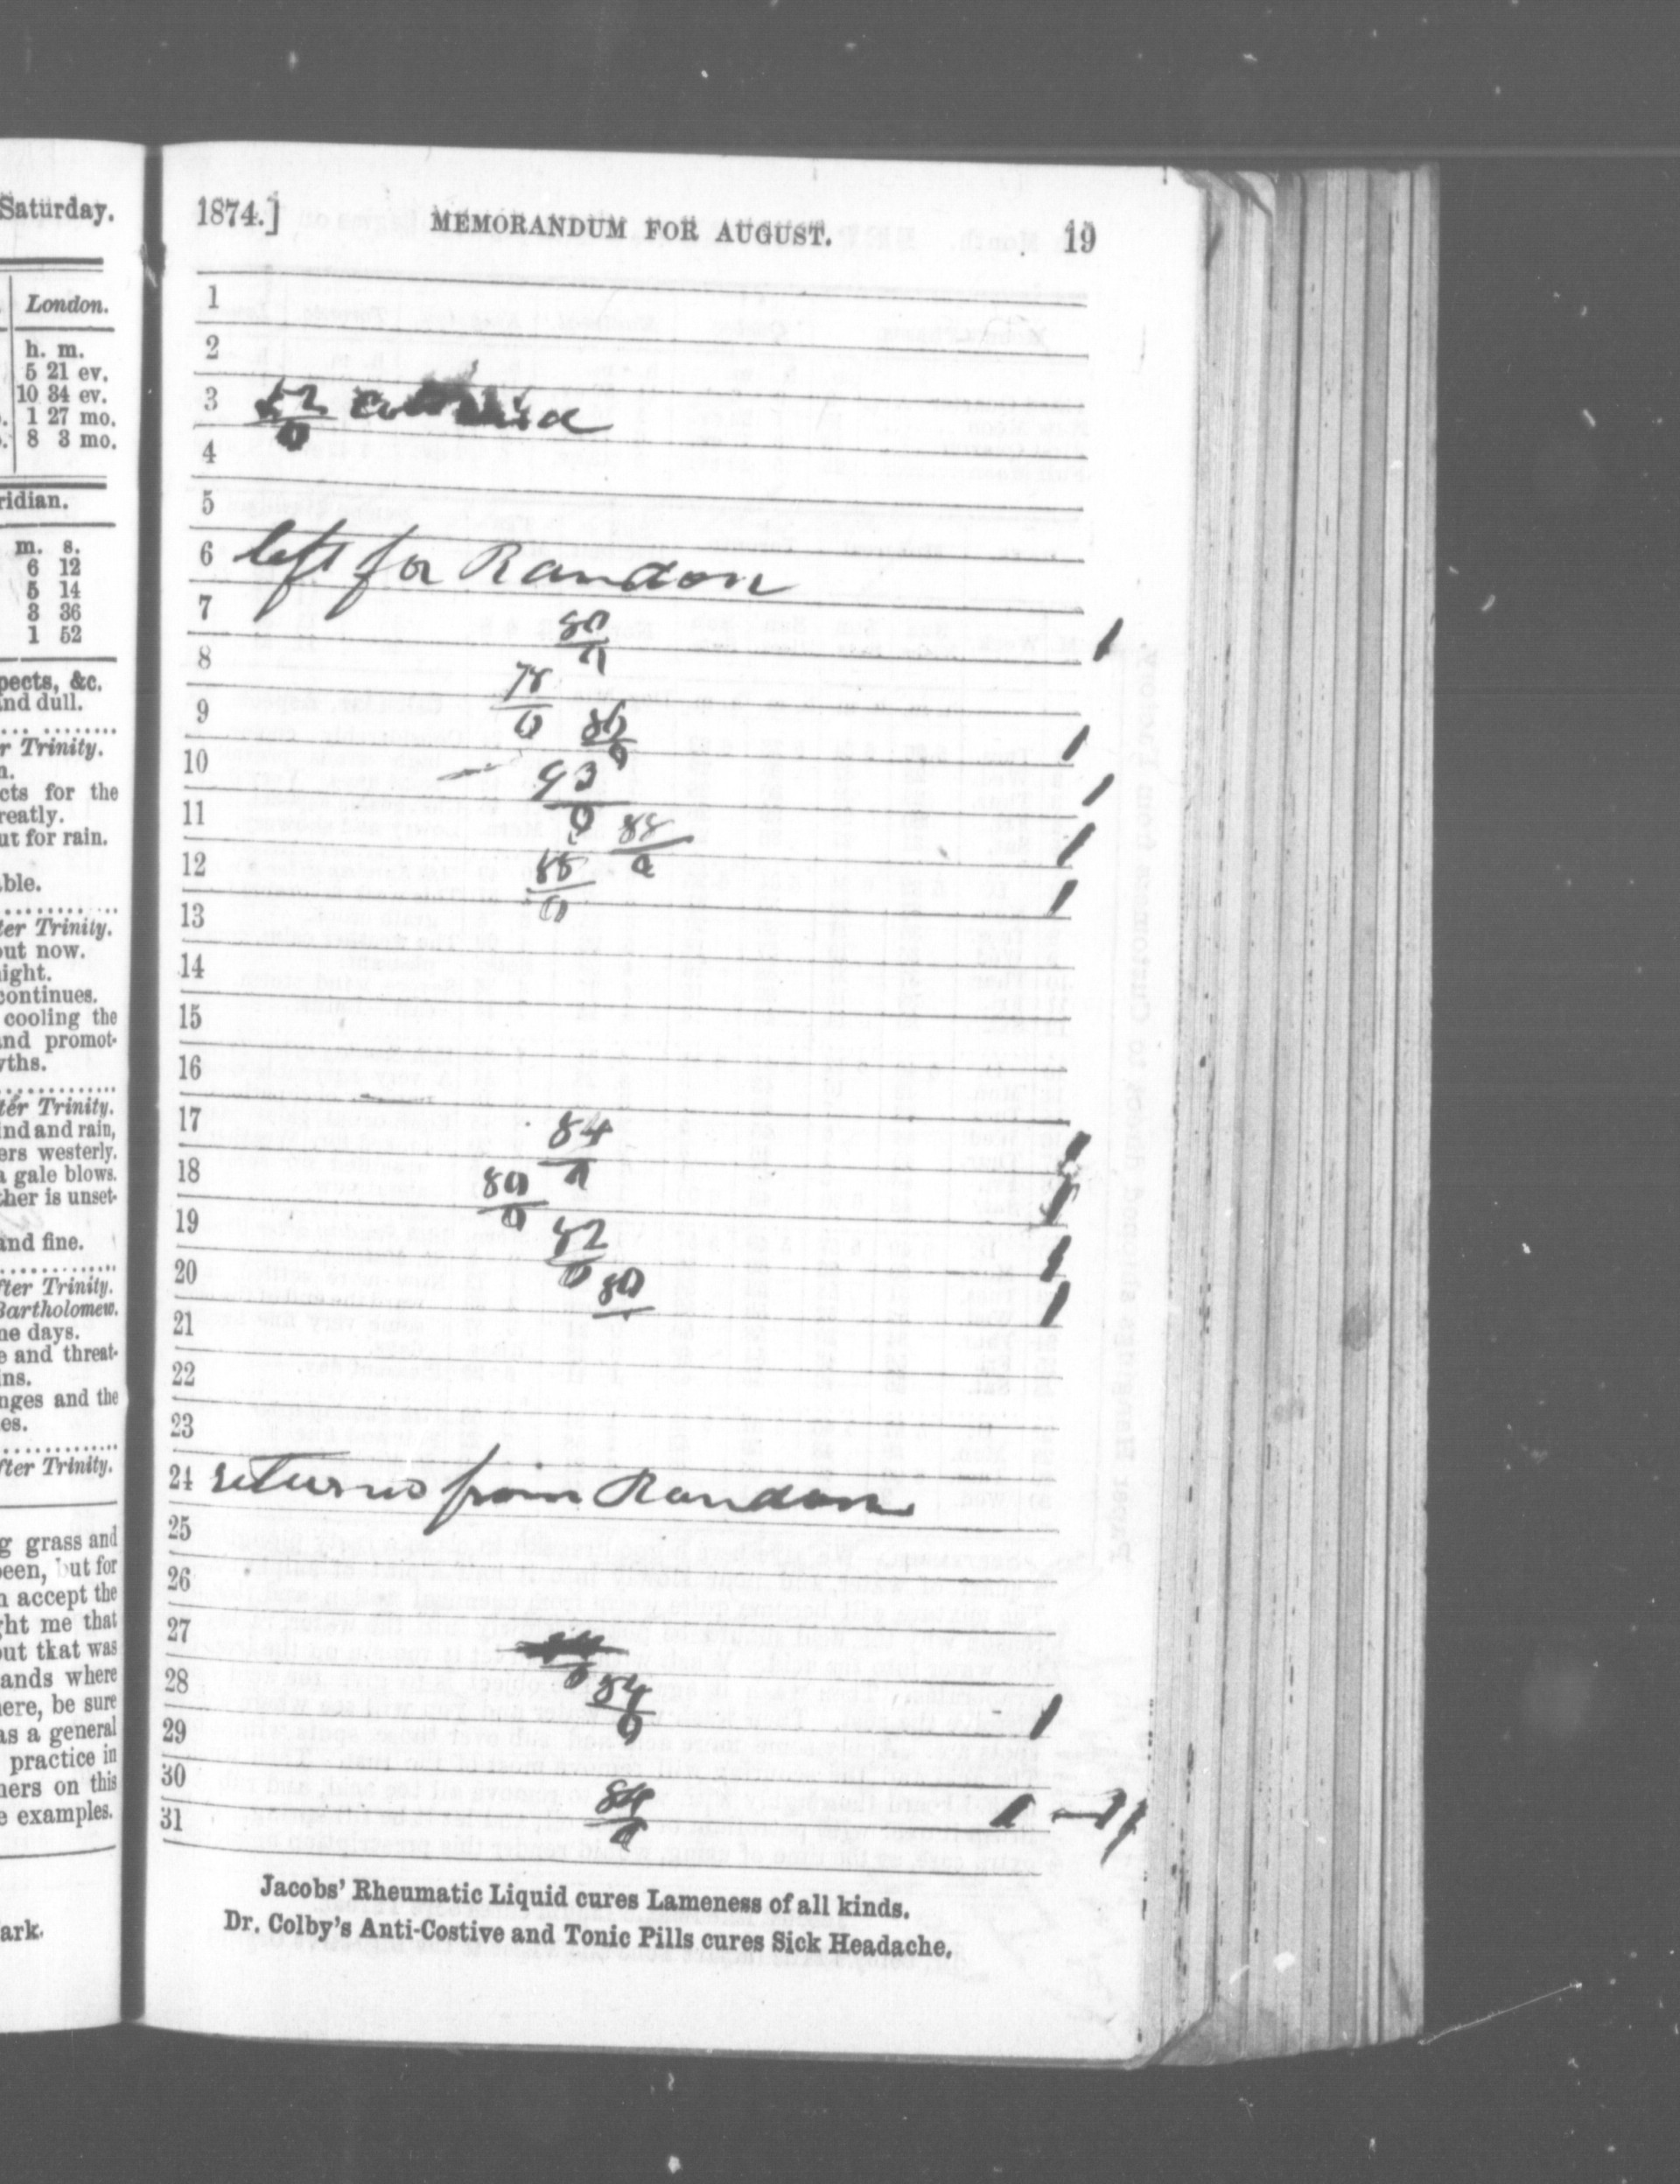 Saturday.
London.
h. m.
5 21 ev.
10 34 ev.
1 27 mo.
8 3 mo.
ridian.
m. s.
6 12
5 14
3 36
1 52
pects, &c.
and dull.
r Trinity.
n.
cts for the
reatly.
ut for rain.
able.
ter Trinity.
out now.
night.
continues.
cooling the
and promot-
wths.
ter Trinity.
ind and rain,
ers westerly.
a gale blows.
ther is unset-
and fine.
fter Trinity.
Bartholomew.
ne days.
e and threat-
ins.
nges and the
es.
fter Trinity.
g grass and
been, but for
n accept the
ght me that
out that was
ands where
here, be sure
as a general
practice in
ners on this
e examples.
ark.
1874.] MEMORANDUM FOR AUGUST. 19
1
2
3 52/0
4
5
6 left for Randon
7 80/0 1
8 78/0
9 86/0 1
10 93/0 1
11 88/0 1
12 88/0 1
13
14
15
16
17 84/0 1
18 80/0 1
19 82/0 1
20 80 1
21
22
23
24 returns from Randon
25
26
27
28 84/0 1
29
30 84/0 1
31
Jacobs' Rheumatic Liquid cures Lameness of all kinds.
Dr. Colby's Anti-Costive and Tonic Pills cures Sick Headache.